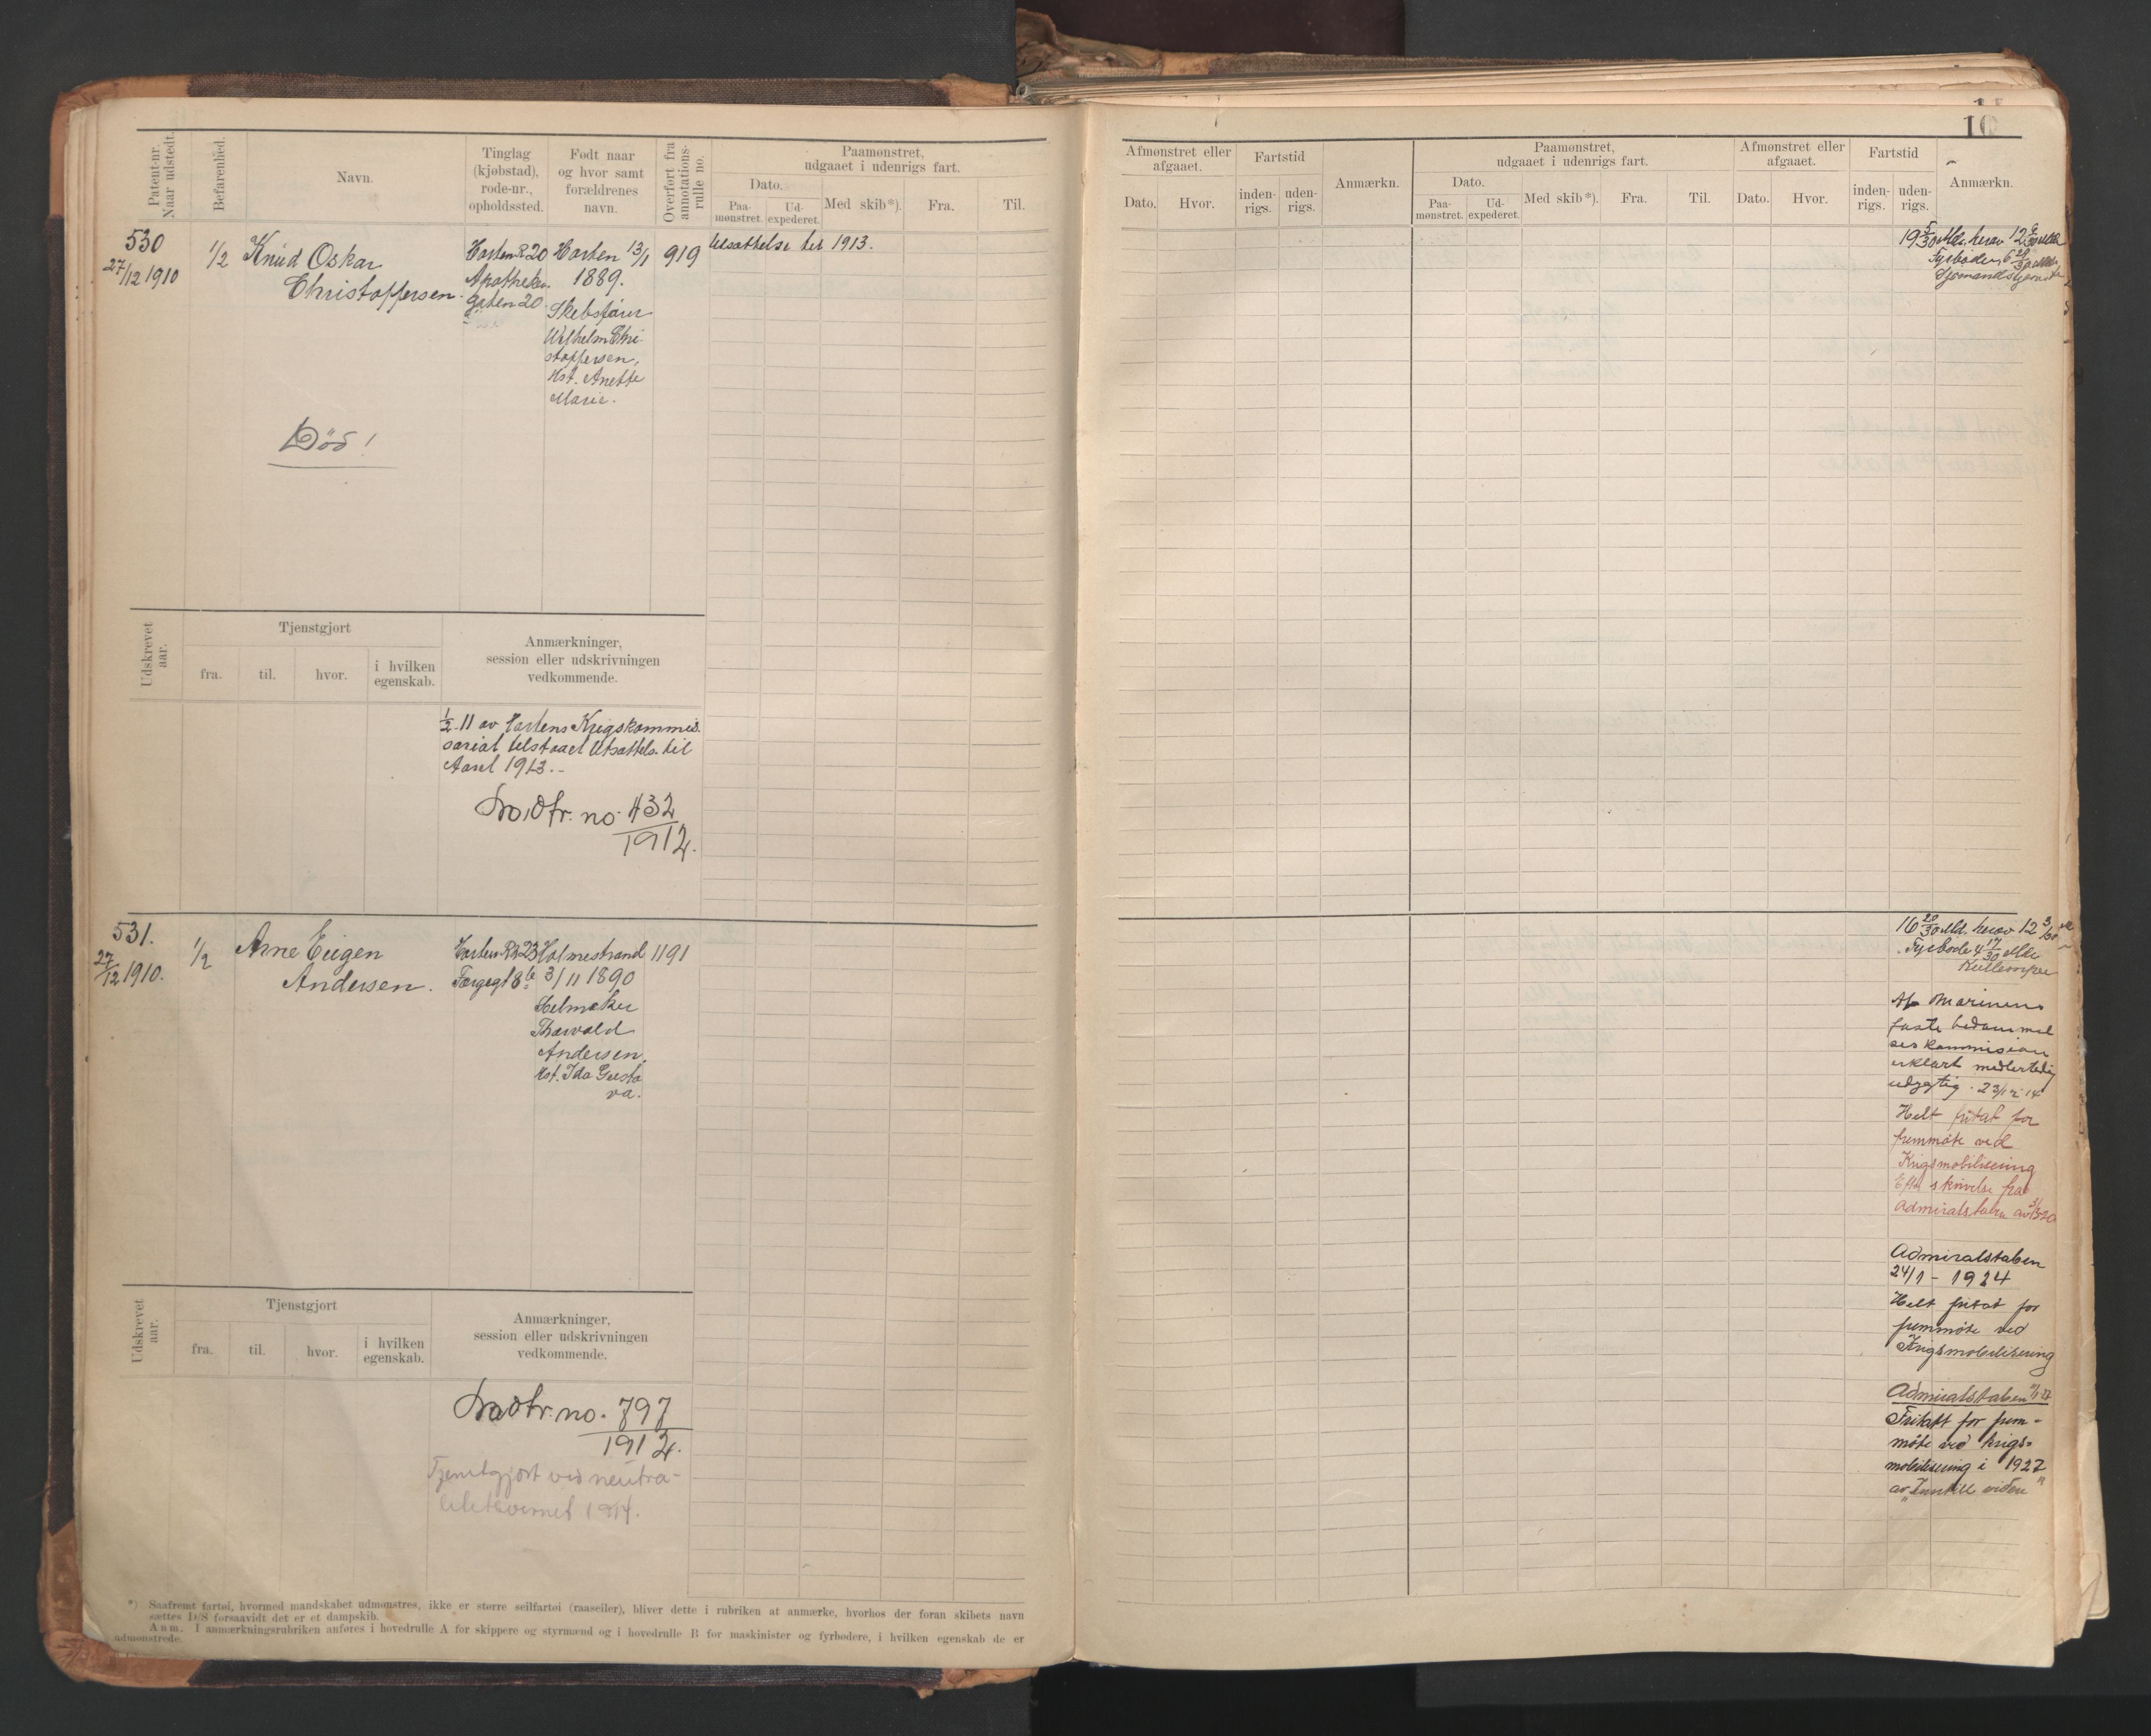 Patent-nr.
Naar udstedt.
Befarenhed.
Navn.
Tinglag
(kjøbstad),
rode-nr.,
opholdssted.
Født naar
og hvor samt
forældrenes
navn.
Overført fra
annotations-
rulle no.
Paamønstret,
udgaaet i udenrigs fart.
Dato.
Paa-
mønstret.
Ud-
expederet.
Med skib*).
Fra.
Til.
530
27/12 1910
1/2
Knud Oskar
Christoffersen
Horten R 20
Apotheker
gaten 20
Horten 13/1
1889.
Skibsfører
Wilhelm Chri-
stoffersen,
Hst. Anette
Marie.
919
Utsættelse til 1913.
Død!
Udskrevet
aar.
Tjenstgjort
fra.
til.
hvor.
i hvilken
egenskab.
Anmærkninger,
session eller udskrivningen
vedkommende.
1/2-11 av Hortens Krigskommis-
sariat tilstaaet Utsættels. til
Aaret 1913.-
no. 432
1912.
531.
27/12 1910.
1/2
Arne Eugen
Andersen.
Horten R 23
Holmestrand
3/11 1890
Thorvald
Andersen.
Hst. Ida Gusta
va.
1191
Udskrevet
aar.
Tjenstgjort
fra.
til.
hvor.
i hvilken
egenskab.
Anmærkninger,
session eller udskrivningen
vedkommende.
no. 797
1912.
Tjenstgjort ved neutra-
litetsvernet 1914.
*) Saafremt fartøi, hvormed mandskabet udmønstres, ikke er større seilfartøi (raaseiler), bliver dette i rubriken at anmærke, hvorhos der foran skibets navn
sættes D/S forsaavidt det er et dampskib.
Anm. I anmærkningsrubriken anføres i hovedrulle A for skippere og styrmænd og i hovedrulle B for maskinister og fyrbødere, i hvilken egenskab de er
udmønstrede.
10
Afmønstret eller
afgaaet.
Dato.
Hvor.
Fartstid
inden-
rigs.
uden-
rigs.
Anmærkn.
Paamønstret,
udgaaet i udenrigs fart.
Dato.
Paa-
mønstret.
Ud-
expederet.
Med skib*).
Fra.
Til.
Afmønstret eller
afgaaet.
Dato.
Hvor.
Fartstid
inden-
rigs.
uden-
rigs.
Anmærkn.
19 5/30 Mdr. herav 12
Fyrbøder, 6
16 20/30 Md. herav 12 3/30
Fyrbøde 4 17/30 Mdr
Kullemper
Af Marinens
faste bedømmel
seskommision
erklært midlertidig
udygtig. 23/12 14
Helt fritat for
fremmøte ved
Krigsmobilisering
Efter skrivelse fra
Admiralstaben av 3/5 20
Admiralstaben
24/1 - 1924
Helt fritat for
fremmøte ved
Krigsmobilisering
Admiralstaben
Fritatt for frem-
møte ved krigs-
mobilisering i 1927
av "Inntill videre"